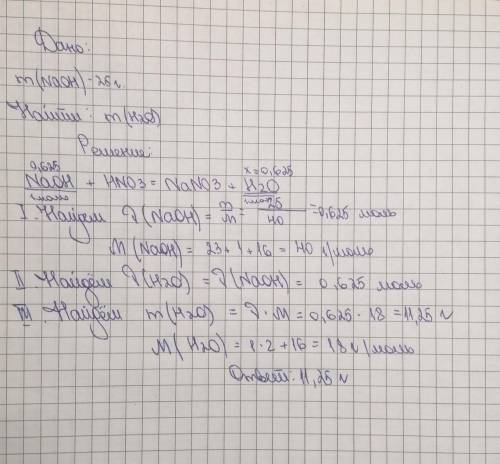 Дано:
m(NaOH) = 25г
Найти: m(H2O)
Решение:
0,625 x=0,625
NaOH + HNO3 = NaNO3 + H2O
1моль 1моль
I. Найдем ν(NaOH) = m/M = 25/40 = 0,625 моль
M(NaOH) = 23+1+16 = 40 г/моль
II. Найдём ν(H2O) = ν(NaOH) = 0,625 моль
III. Найдём m(H2O) = ν·M = 0,625·18 = 11,25 г
M(H2O) = 1·2+16 = 18 г/моль
Ответ: 11,25 г